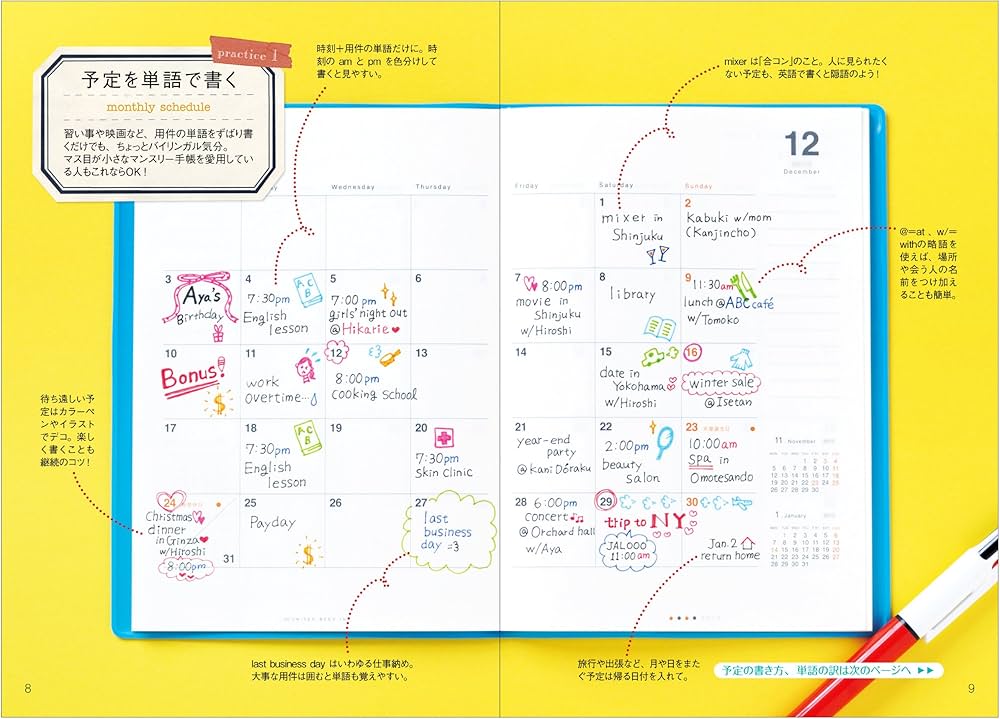 practice 1
予定を単語で書く
monthly schedule
習い事や映画など、用件の単語をずばり書
くだけでも、ちょっとバイリンガル気分。
マス目が小さなマンスリー手帳を愛用してい
る人もこれならOK！
時刻＋用件の単語だけに。時
刻の am と pm を色分けして
書くと見やすい。
mixer は「合コン」のこと。人に見られたく
ない予定も、英語で書くと隠語のよう！
@＝at 、w/＝
withの略語を
使えば、場所
や会う人の名
前をつけ加え
ることも簡単。
待ち遠しい予
定はカラーペ
ンやイラスト
でデコ。楽し
く書くことも
継続のコツ！
12
December
Wednesday
Thursday
Friday
Saturday
Sunday
1
mixer in
Shinjuku
2
Kabuki w/mom
(Kanjincho)
3
Aya's
Birthday
4
ABC
7:30pm
English
lesson
5
7:00 pm
girls' night out
@Hikarie
6
7
8:00pm
movie in
Shinjuku
w/Hiroshi
8
library
9
11:30am
lunch @ABC café
w/Tomoko
10
Bonus!
$
11
work
overtime…
12
8:00pm
cooking school
13
14
15
date in
Yokohama
w/Hiroshi
16
winter sale
@Isetan
17
18
ABC
7:30pm
English
lesson
19
20
7:30pm
Skin Clinic
21
year-end
party
@Kani Dōraku
22
2:00pm
beauty
salon
23
天皇誕生日
10:00am
spa in
Omotesando
24
Christmas
dinner
in Ginza
w/Hiroshi
8:00pm
31
25
Payday
$
26
27
last
business
day =3
28
6:00pm
concert
@Orchard hall
w/Aya
29
trip to NY
JAL000
11:00am
30
Jan.2
return home
11 November
1 2 3 4
5 6 7 8 9 10 11
12 13 14 15 16 17 18
19 20 21 22 23 24 25
26 27 28 29 30
1 January
1 2 3 4 5 6
7 8 9 10 11 12 13
14 15 16 17 18 19 20
21 22 23 24 25 26 27
28 29 30 31
last business day はいわゆる仕事納め。
大事な用件は囲むと単語も覚えやすい。
旅行や出張など、月や日をまた
ぐ予定は帰る日付を入れて。
予定の書き方、単語の訳は次のページへ ▶▶
8
9